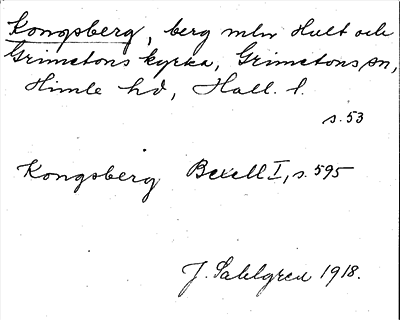 Kongsberg, berg mln Hult och
Grimetons kyrka, Grimetons sn,
Himle hd, Hall. l.
s. 53
Kongsberg Bexell I, s. 595
J. Sahlgren 1918.